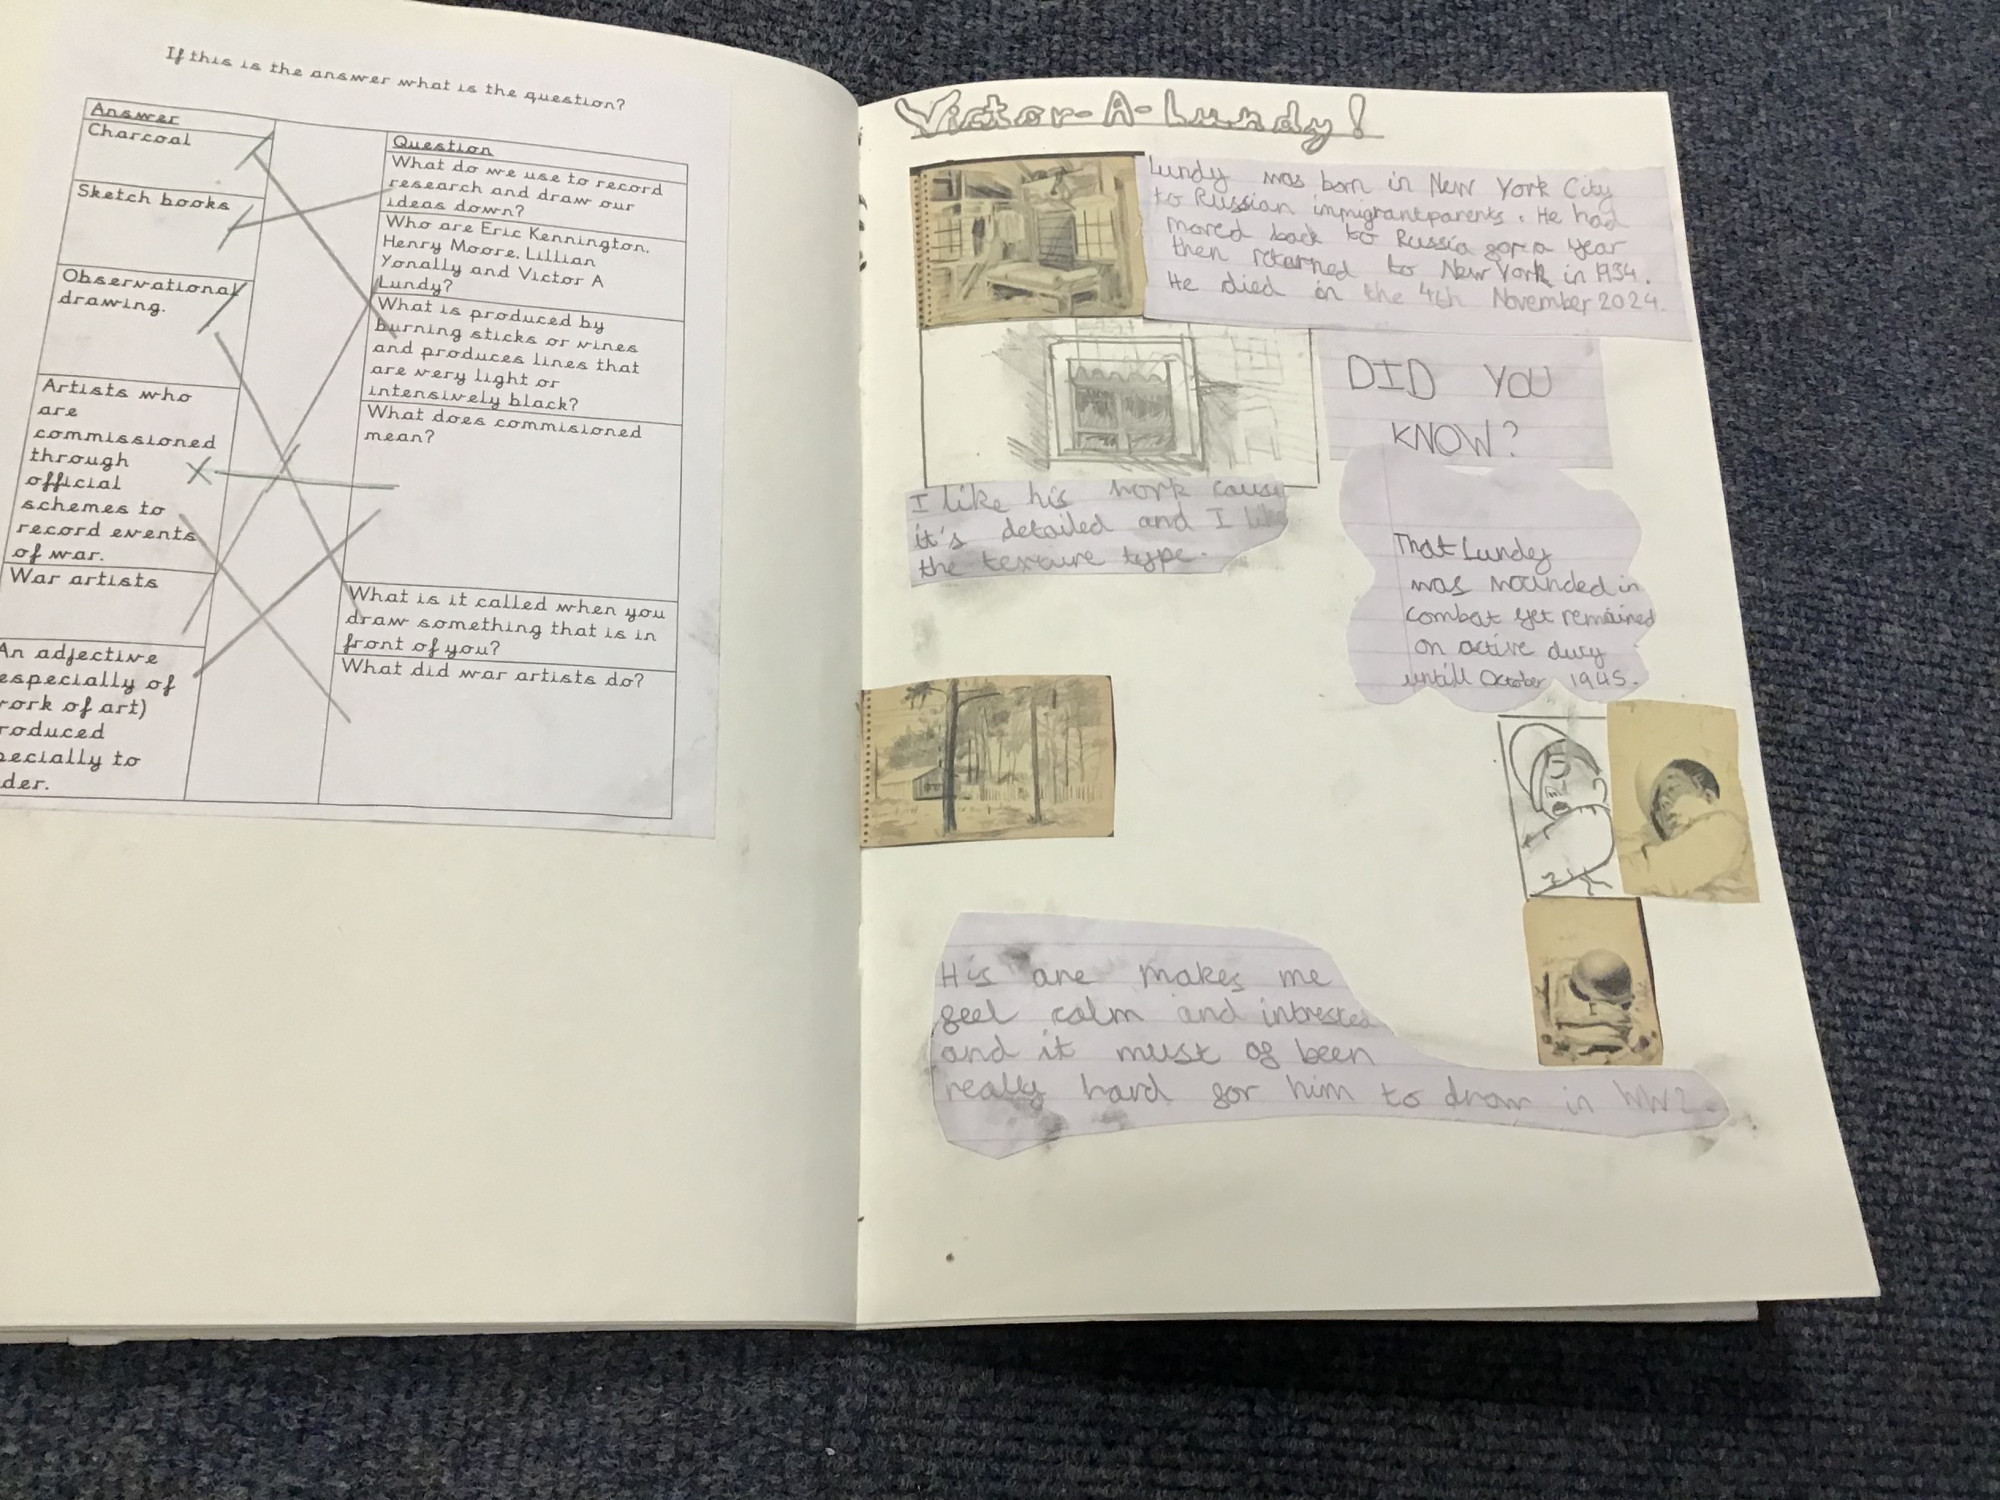 If this is the answer what is the question?
Answer
Charcoal
Sketch books
Observational
drawing.
Artists who
are
commissioned
through
official
schemes to
record events
of war.
War artists
An adjective
especially of
work of art)
roduced
pecially to
der.
Question
What do we use to record
research and draw our
ideas down?
Who are Eric Kennington,
Henry Moore, Lillian
Yonally and Victor A
Lundy?
What is produced by
burning sticks or vines
and produces lines that
are very light or
intensively black?
What does commisioned
mean?
What is it called when you
draw something that is in
front of you?
What did war artists do?
Victor-A-Lundy!
Lundy was born in New York City
to Russian immigrant parents. He had
moved back to Russia for a year
then returned to New York in 1934.
He died on the 4th November 2024.
DID YOU
KNOW?
I like his work cause
it's detailed and I like
the texture type.
That Lundy
was wounded in
combat yet remained
on active duty
untill October 1945.
His are makes me
feel calm and intrested
and it must of been
really hard for him to draw in WW2.